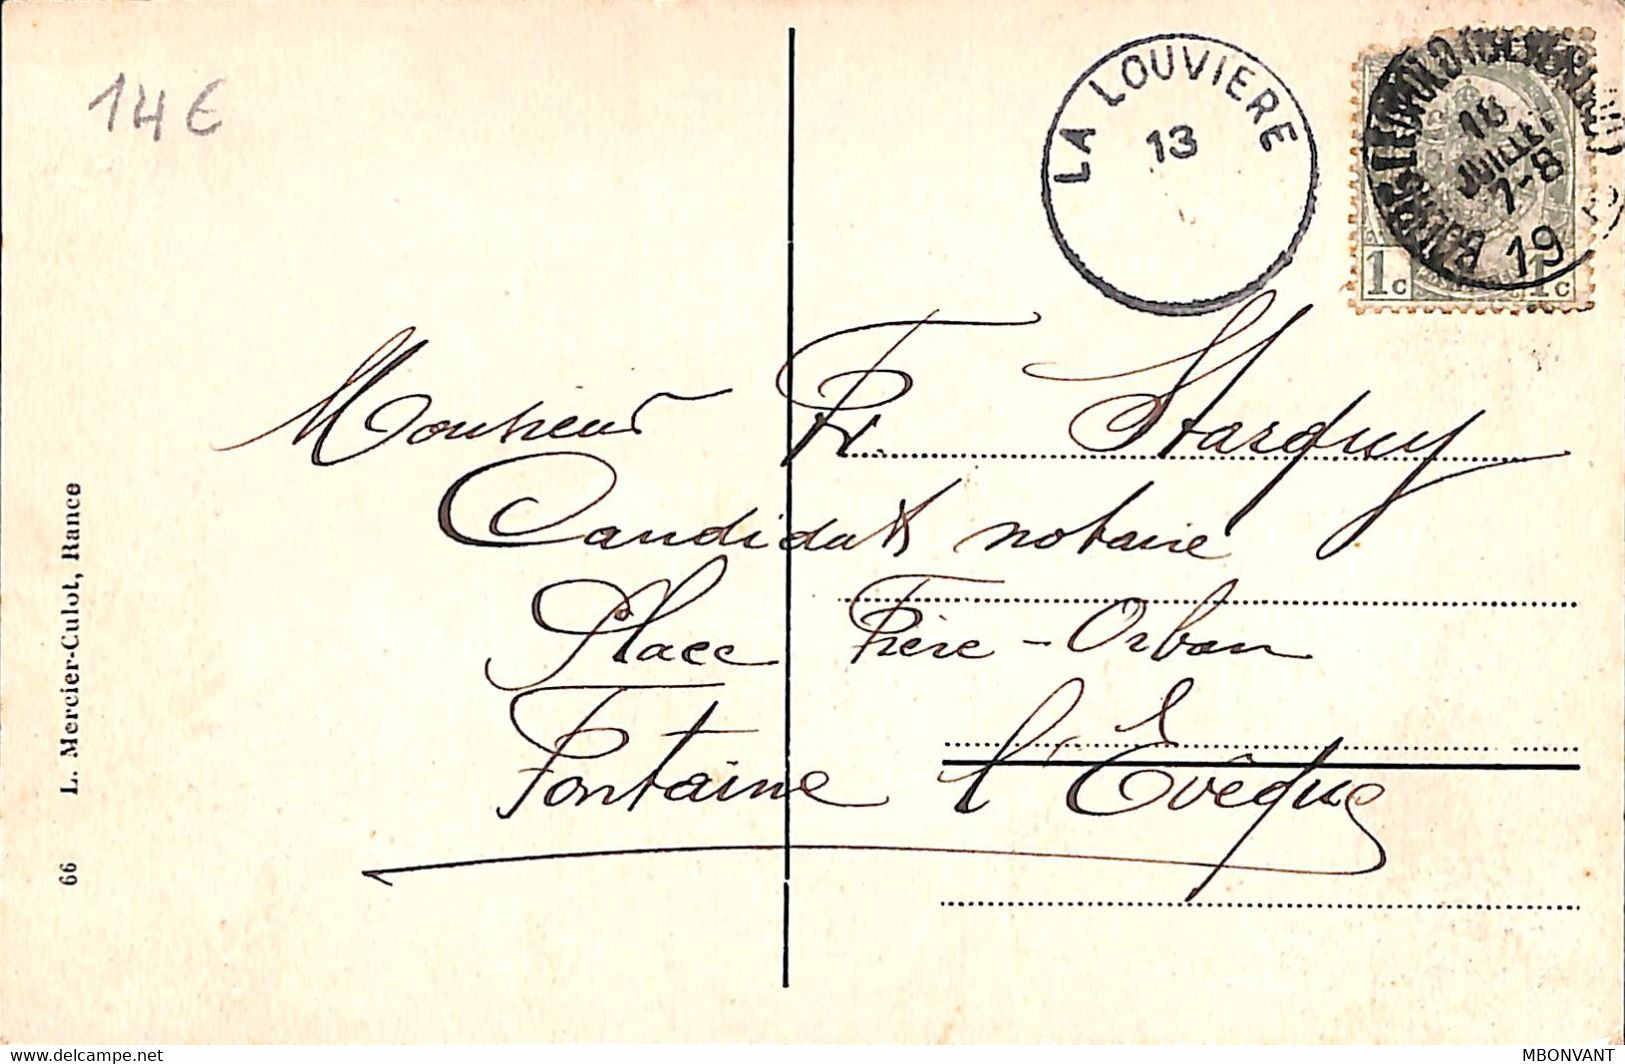 14 €
LA LOUVIERE
13
18
JUILLET
7-8
19
1c 1c
Monsieur Fr. Starquy
Candidat notaire
Place Frère-Orban
Fontaine l'Evêque
66 L. Mercier-Culot, Rance
www.delcampe.net
MBONVANT